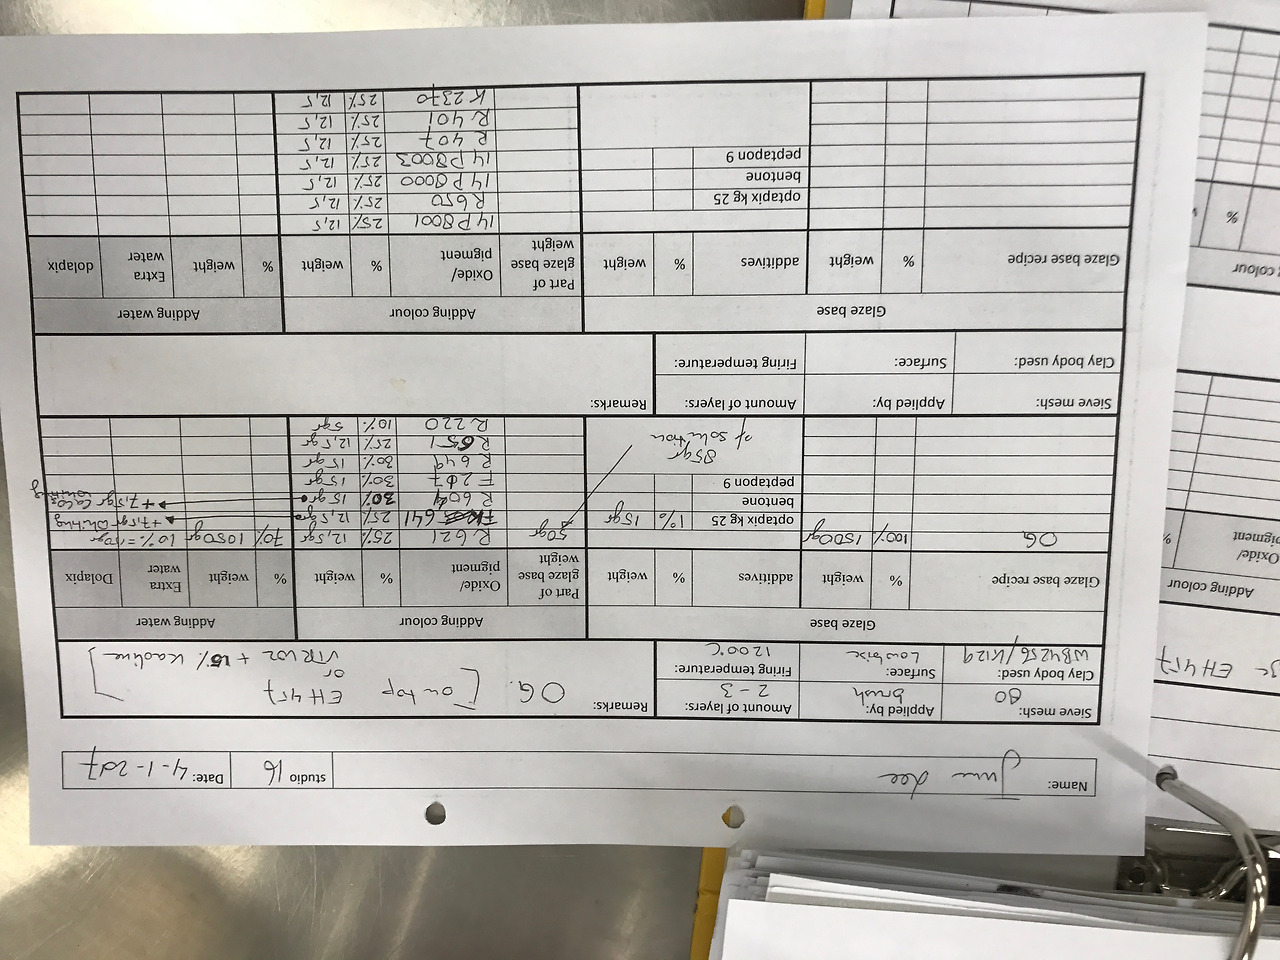 Name: June Lee studio 16 Date: 4-1-2017
Sieve mesh: 80 Applied by: brush Amount of layers: 2-3 Remarks: OG. [on top EH457
or
Clay body used: WB4256/K129 Surface: Low bisc Firing temperature: 1200°C VTR W2 + 15% Kaoline]
Glaze base Adding colour Adding water
Glaze base recipe % weight additives % weight Part of glaze base weight Oxide/ pigment % weight % weight Extra water Dolapix
OG 100% 1500gr optapix kg 25 1% 15gr 50gr R.621 25% 12,5gr 70% 1050gr 10%=150gr
bentone 641 25% 12,5gr +7,5gr whiting
peptapon 9 R 604 30% 15gr +7,5gr CaCo3 whiting
F 207 30% 15gr
85gr R 649 30% 15gr
of solution R 651 25% 12,5gr
R 220 10% 5gr
Sieve mesh: Applied by: Amount of layers: Remarks:
Clay body used: Surface: Firing temperature:
Glaze base Adding colour Adding water
Glaze base recipe % weight additives % weight Part of glaze base weight Oxide/ pigment % weight % weight Extra water dolapix
14P8001 25% 12,5
optapix kg 25 R650 25% 12,5
bentone 14P8000 25% 12,5
peptapon 9 14P8003 25% 12,5
R 407 25% 12,5
R 401 25% 12,5
K 2370 25% 12,5
EH 457
Adding colour
Oxide/ pigment %
colour
%